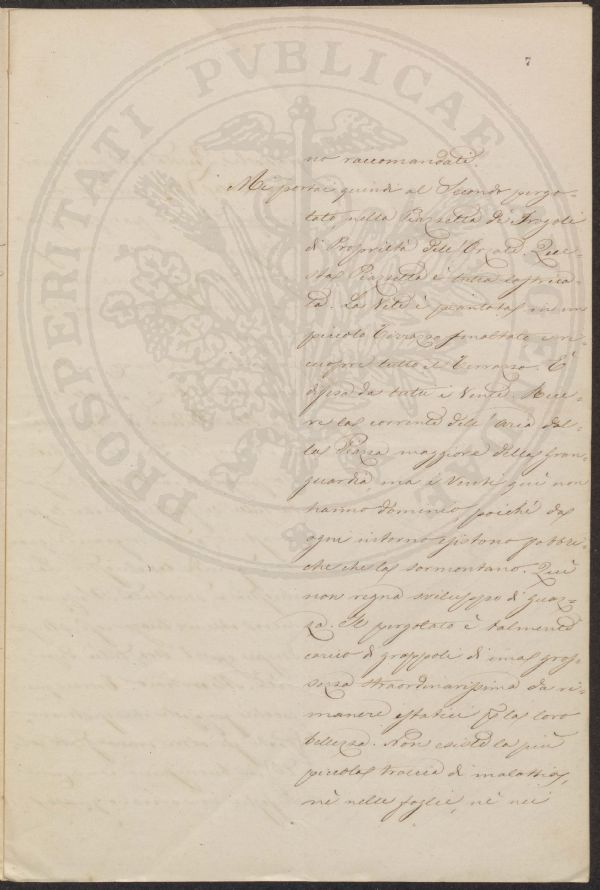 7
PROSPERITATI PVBLICAE
no raccomandati.
Mi portai quindi al Secondo pergo-
lato, nella Piazzetta di
di Proprietà dell' Orzati. Que-
sta Piazzetta è tutta lastrica-
ta. La Vite è piantata in un
piccolo Terrazzo smaltato e ri-
cuopre tutto il Terrazzo. È
difesa da tutti i Venti. Rice-
ve la corrente dell' aria dal-
la Piazza maggiore della gran-
guardia, ma i Venti quì non
hanno dominio, poichè da
ogni intorno esistono fabbri-
che che la sormontano. Quì
non regna sviluppo di guaz-
za. Il pergolato è talmente
carico di grappoli di una gros-
sezza straordinarissima da ri-
manere estatici p la loro
bellezza. Non esiste la più
piccola traccia di malattia,
nè nelle foglie, nè nei